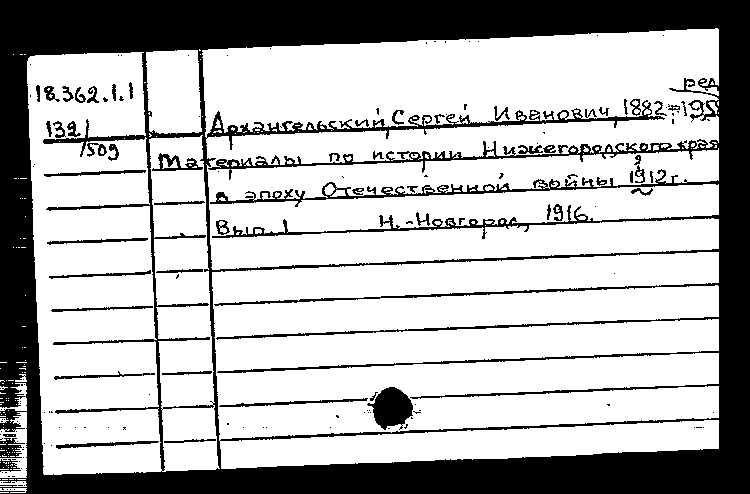 18.362.1.1
ред
132/509
Архангельский, Сергей Иванович, 1882-195
Материалы по истории Нижегородского края
в эпоху Отечественной войны 1912 г.
?
Вып. 1 Н.-Новгород, 1916.